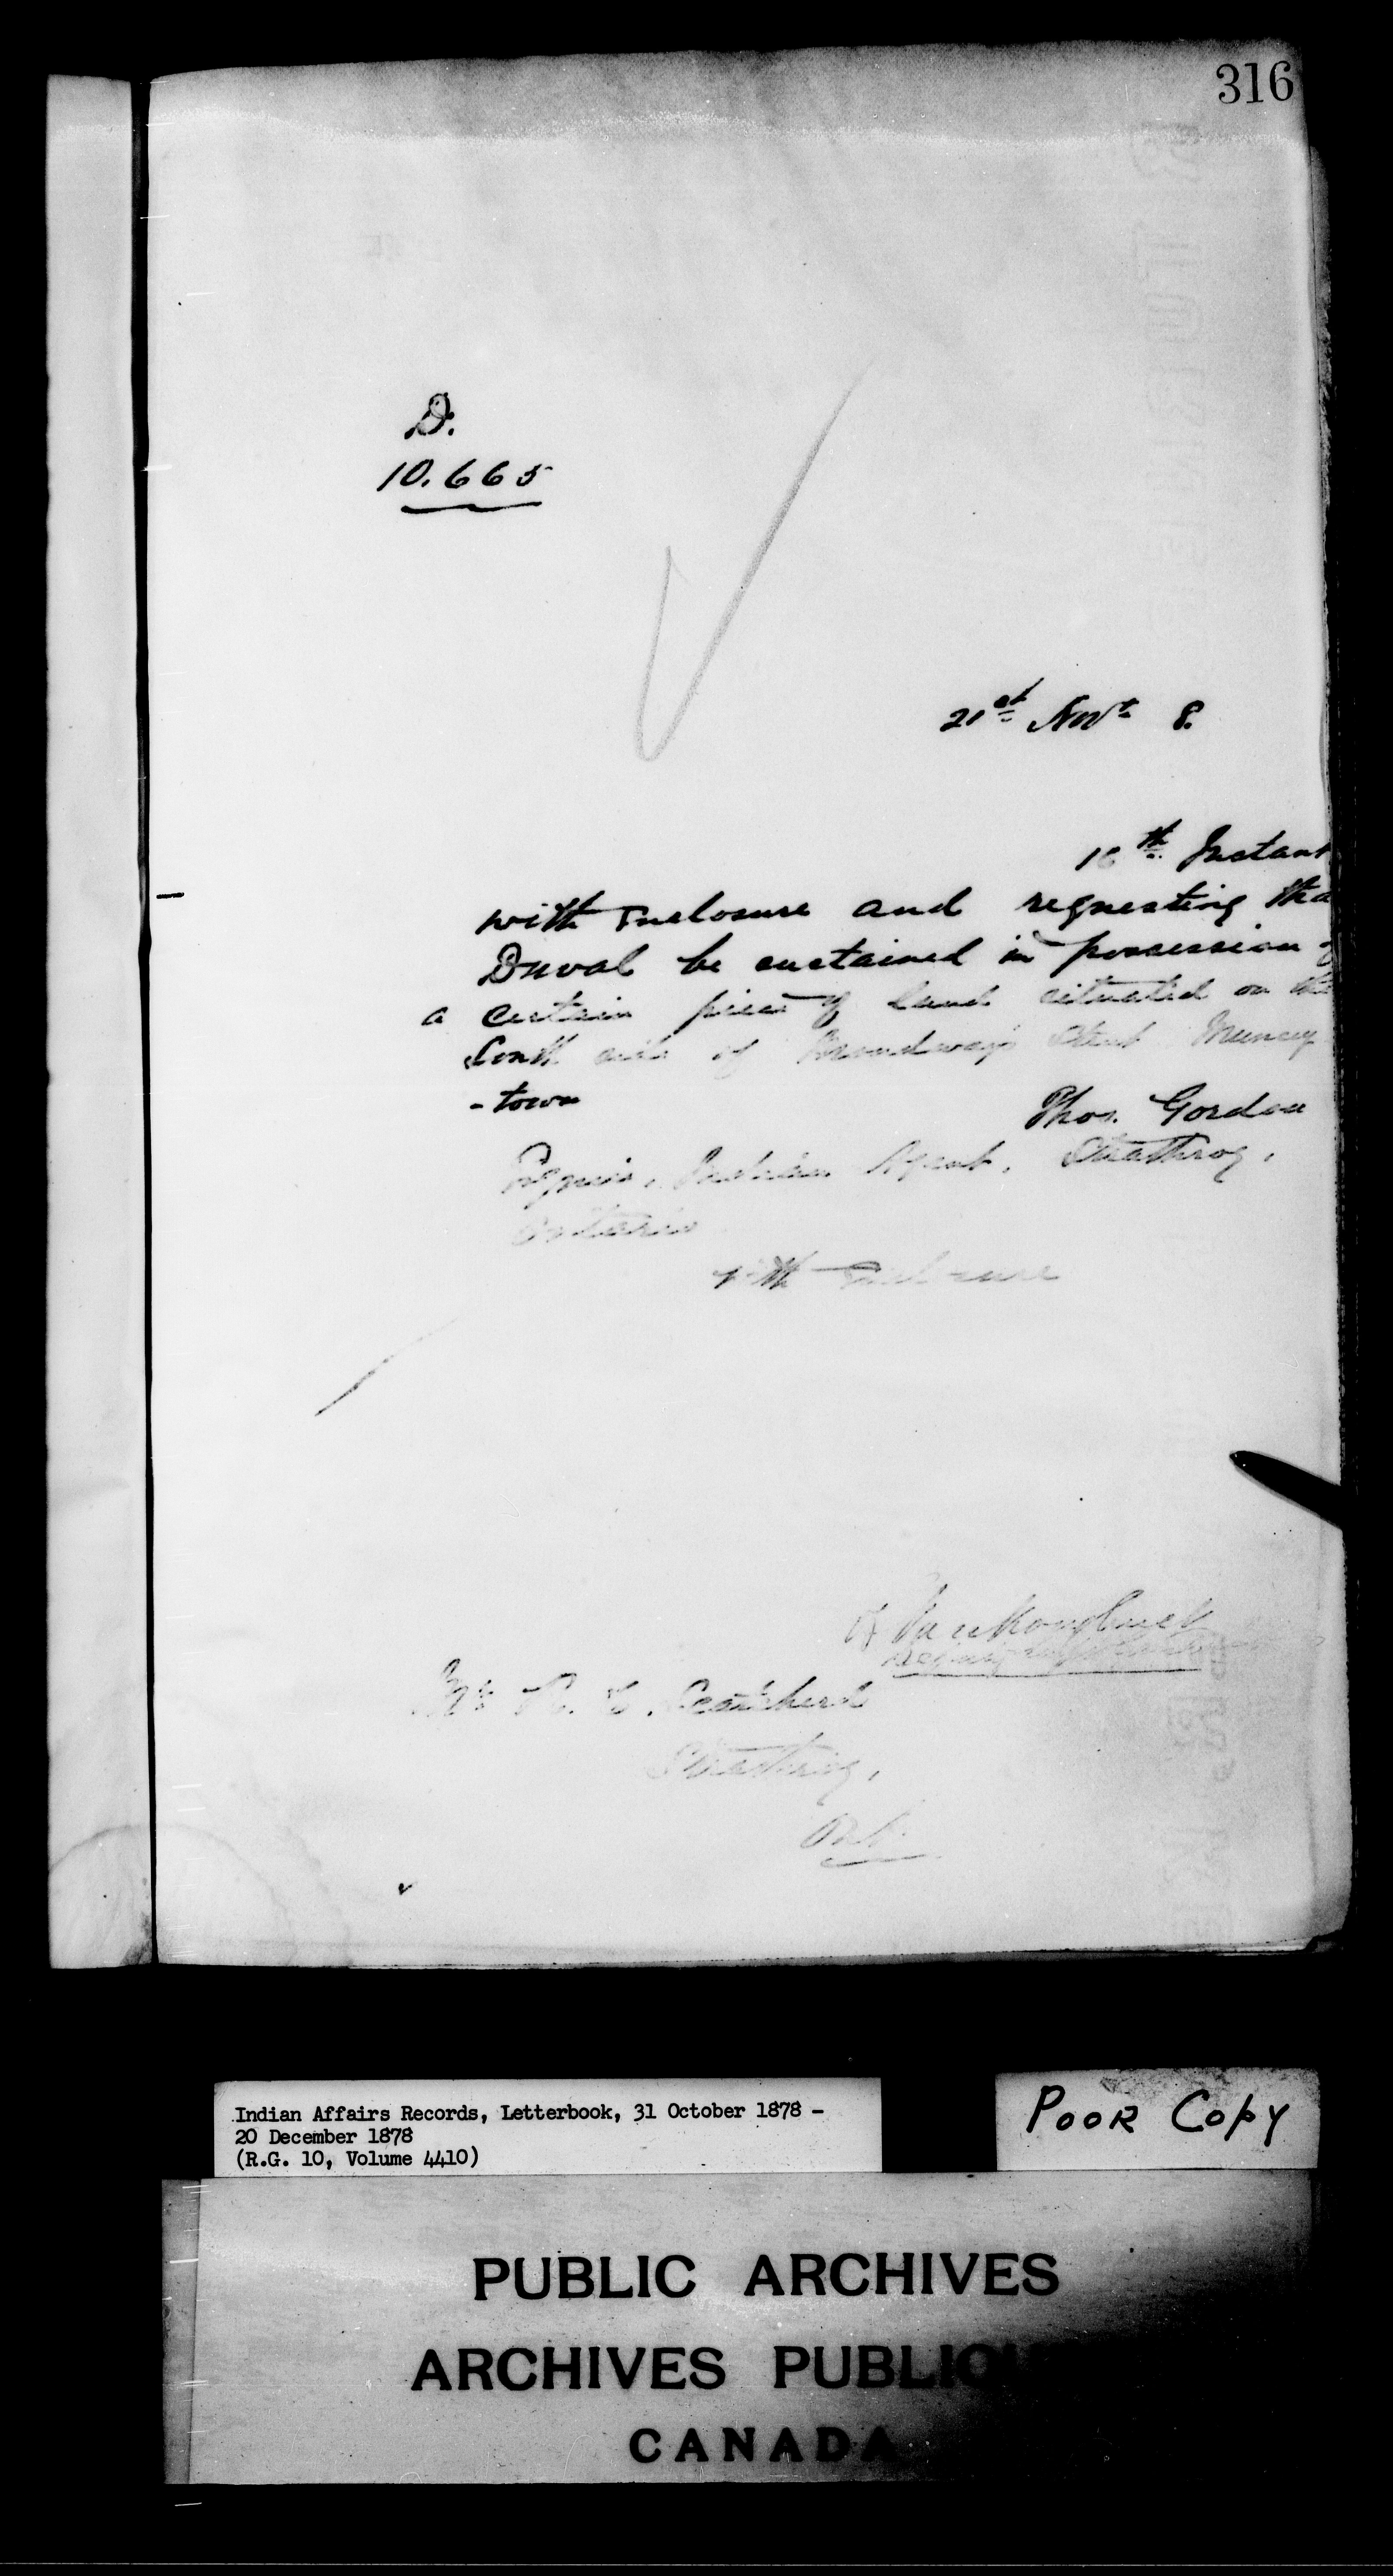 316
D.
10.665
21st Novr 8.
16th Instant
with Enclosure and requesting tha
Duval be sustained in possession
a certain piece of land situated on the
South side of Street Muncey
- town
Thos. Gordon
Esquire, Indian Agent, Strathroy,
Ontario
with Enclosure
Vankoughnet
Deputy
Mr R. C. Scatcherd
Strathroy,
Ont.
Indian Affairs Records, Letterbook, 31 October 1878 -
20 December 1878
(R.G. 10, Volume 4410)
POOR COPY
PUBLIC ARCHIVES
ARCHIVES PUBLIQU
CANADA